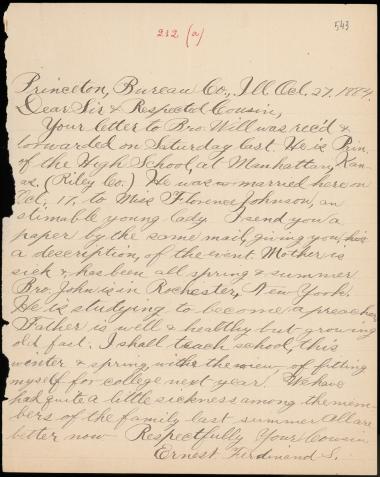 212 (a)
543
Princeton, Bureau Co., Ill. Oct. 27, 1884.
Dear Sir & Respected Cousin,
Your letter to Bro. Will was rec'd &
forwarded on Saturday last. He is Prin.
of the High School, at Manhattan, Kan-
as. (Riley Co.) He was married here on
Oct. 17, to Miss Florence Johnson, an
stimable young lady I send you a
paper by the same mail, giving you
a description, of the event Mother is
sick & has been all spring & summer
Bro. John is in Rochester, New York.
He is studying to become a preacher
Father is well & healthy but growing
old fast. I shall teach school, this
winter & spring, with the view of fitting
myself for college next year. We have
had quite a little sickness among the mem-
bers of the family last summer All are
better now Respectfully Your Cousin
Ernest Ferdinand S.